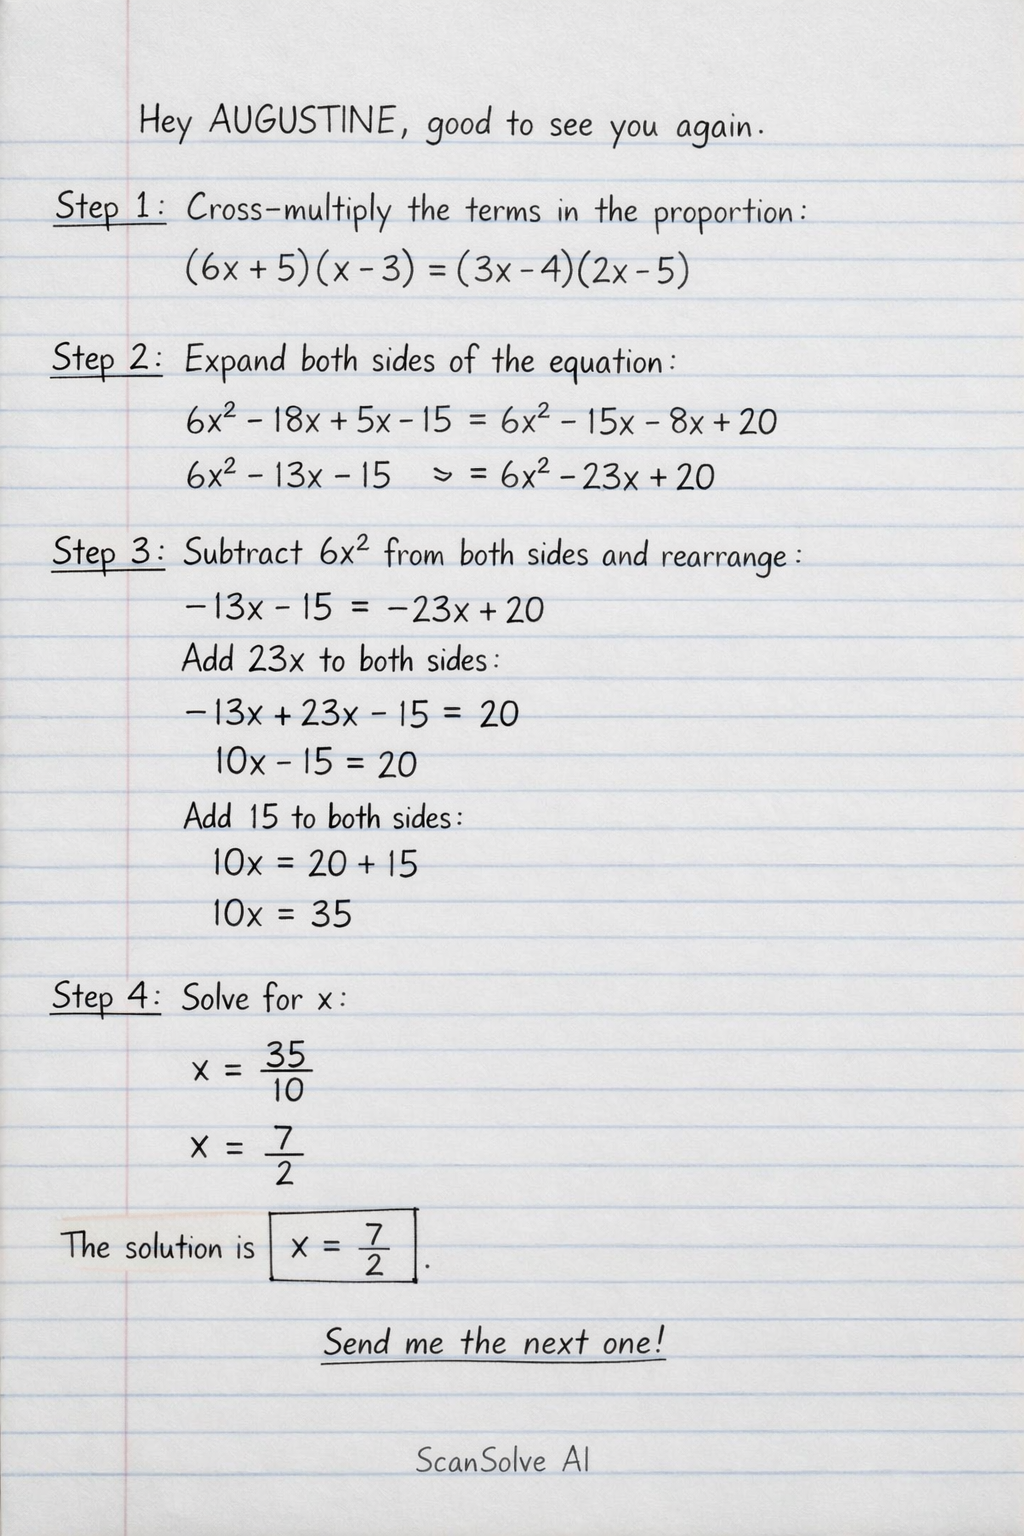 Hey AUGUSTINE, good to see you again.
Step 1: Cross-multiply the terms in the proportion:
(6x + 5)(x - 3) = (3x - 4)(2x - 5)
Step 2: Expand both sides of the equation:
6x² - 18x + 5x - 15 = 6x² - 15x - 8x + 20
6x² - 13x - 15 = 6x² - 23x + 20
Step 3: Subtract 6x² from both sides and rearrange:
-13x - 15 = -23x + 20
Add 23x to both sides:
-13x + 23x - 15 = 20
10x - 15 = 20
Add 15 to both sides:
10x = 20 + 15
10x = 35
Step 4: Solve for x:
x = 35/10
x = 7/2
The solution is x = 7/2.
Send me the next one!
ScanSolve AI